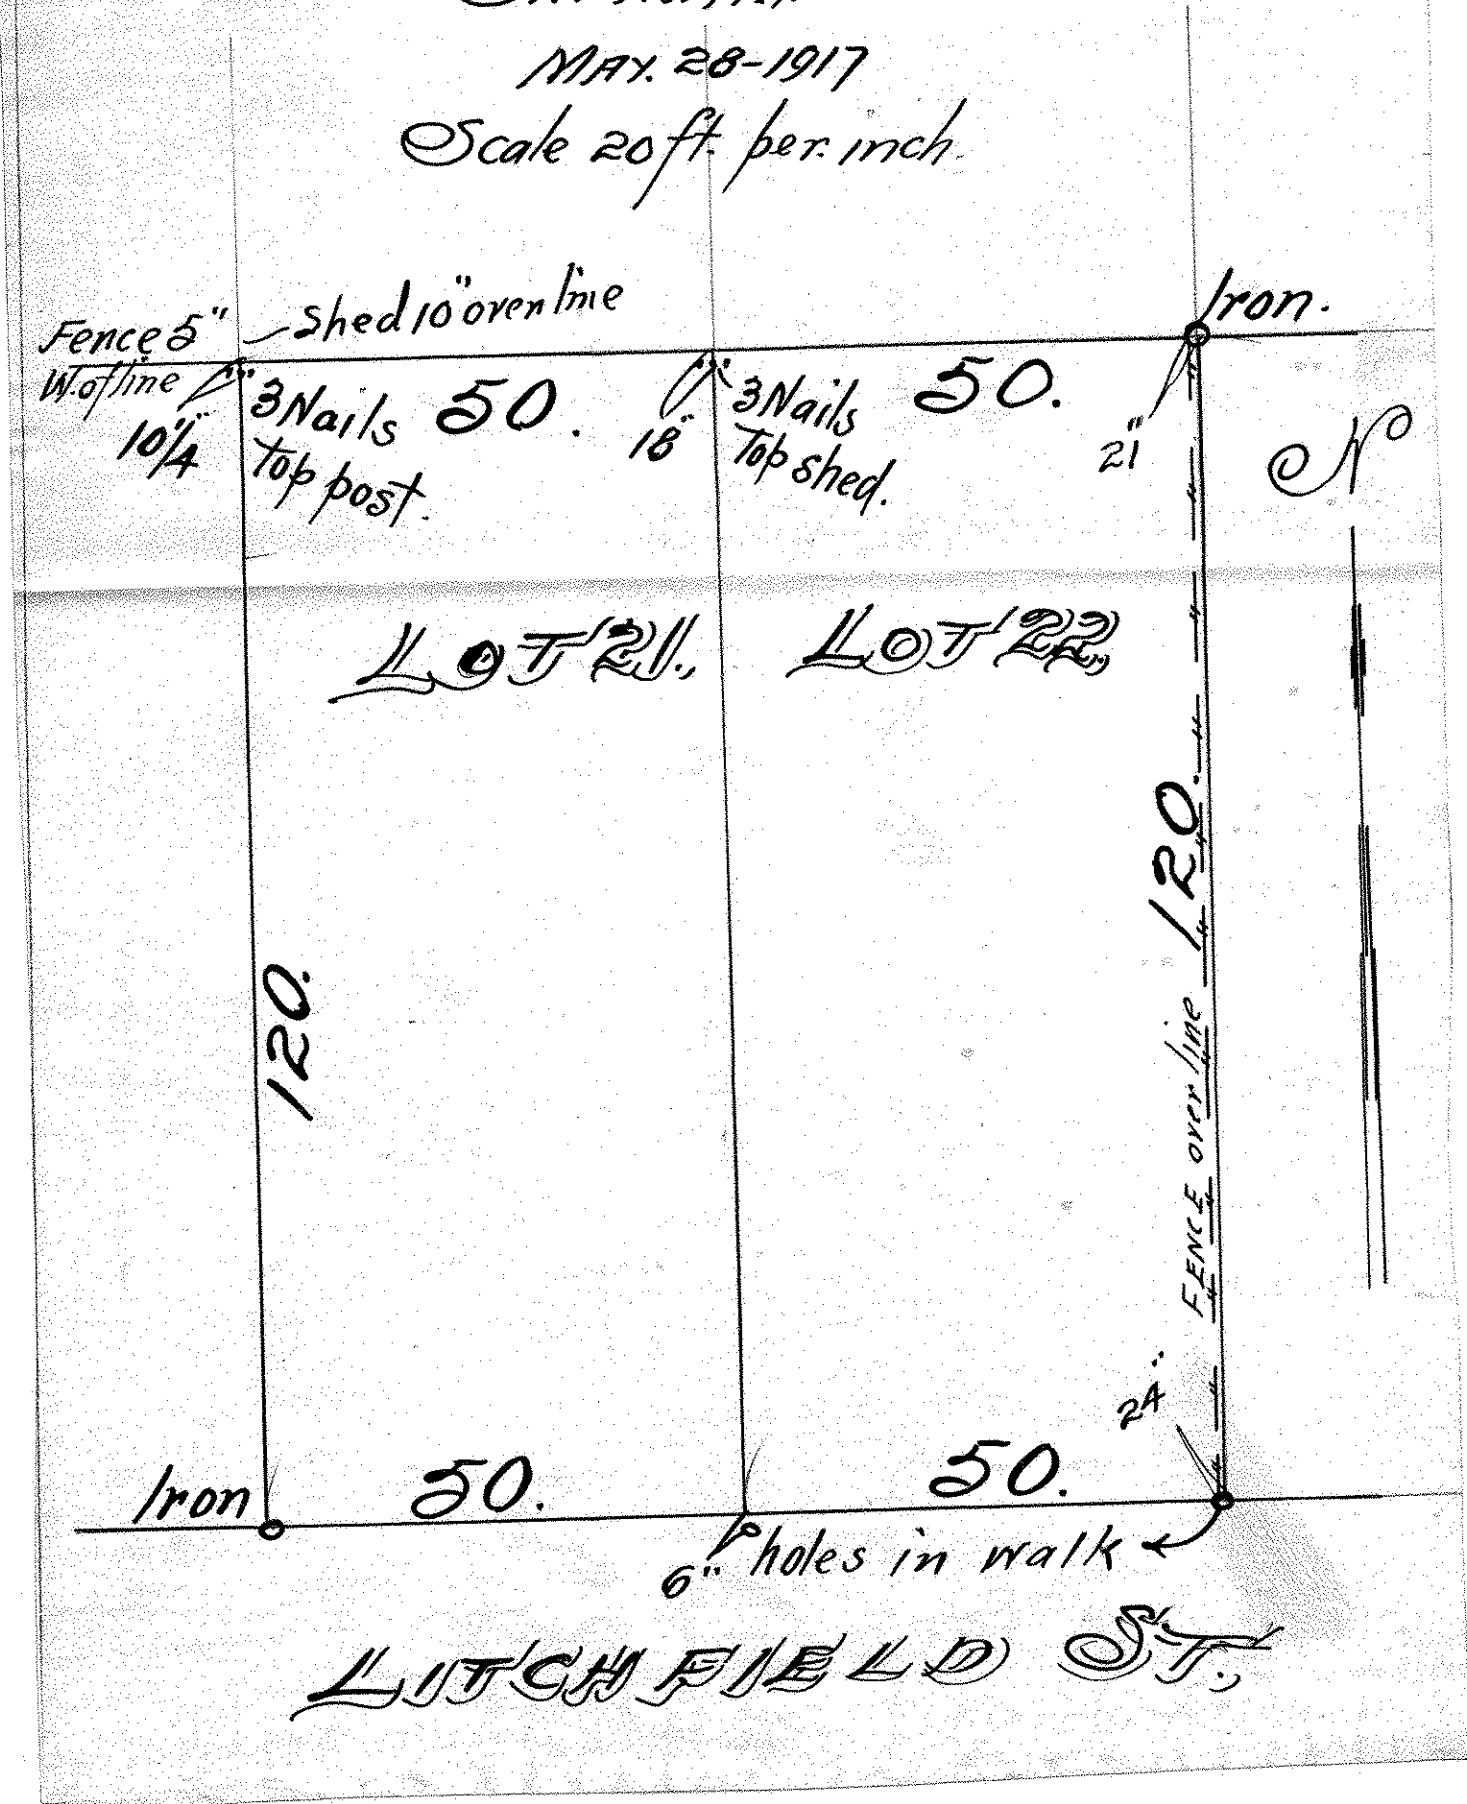 MAY. 28-1917
Scale 20 ft. per. inch.
Shed 10" over line
Fence 5"
W. of line
Iron.
10 1/4"
3 Nails
Top post.
50.
18"
3 Nails
Top shed.
50.
21"
N
LOT 21.
LOT 22.
120.
120.
FENCE over line
24"
Iron
50.
50.
6"
holes in walk
LITCHFIELD ST.